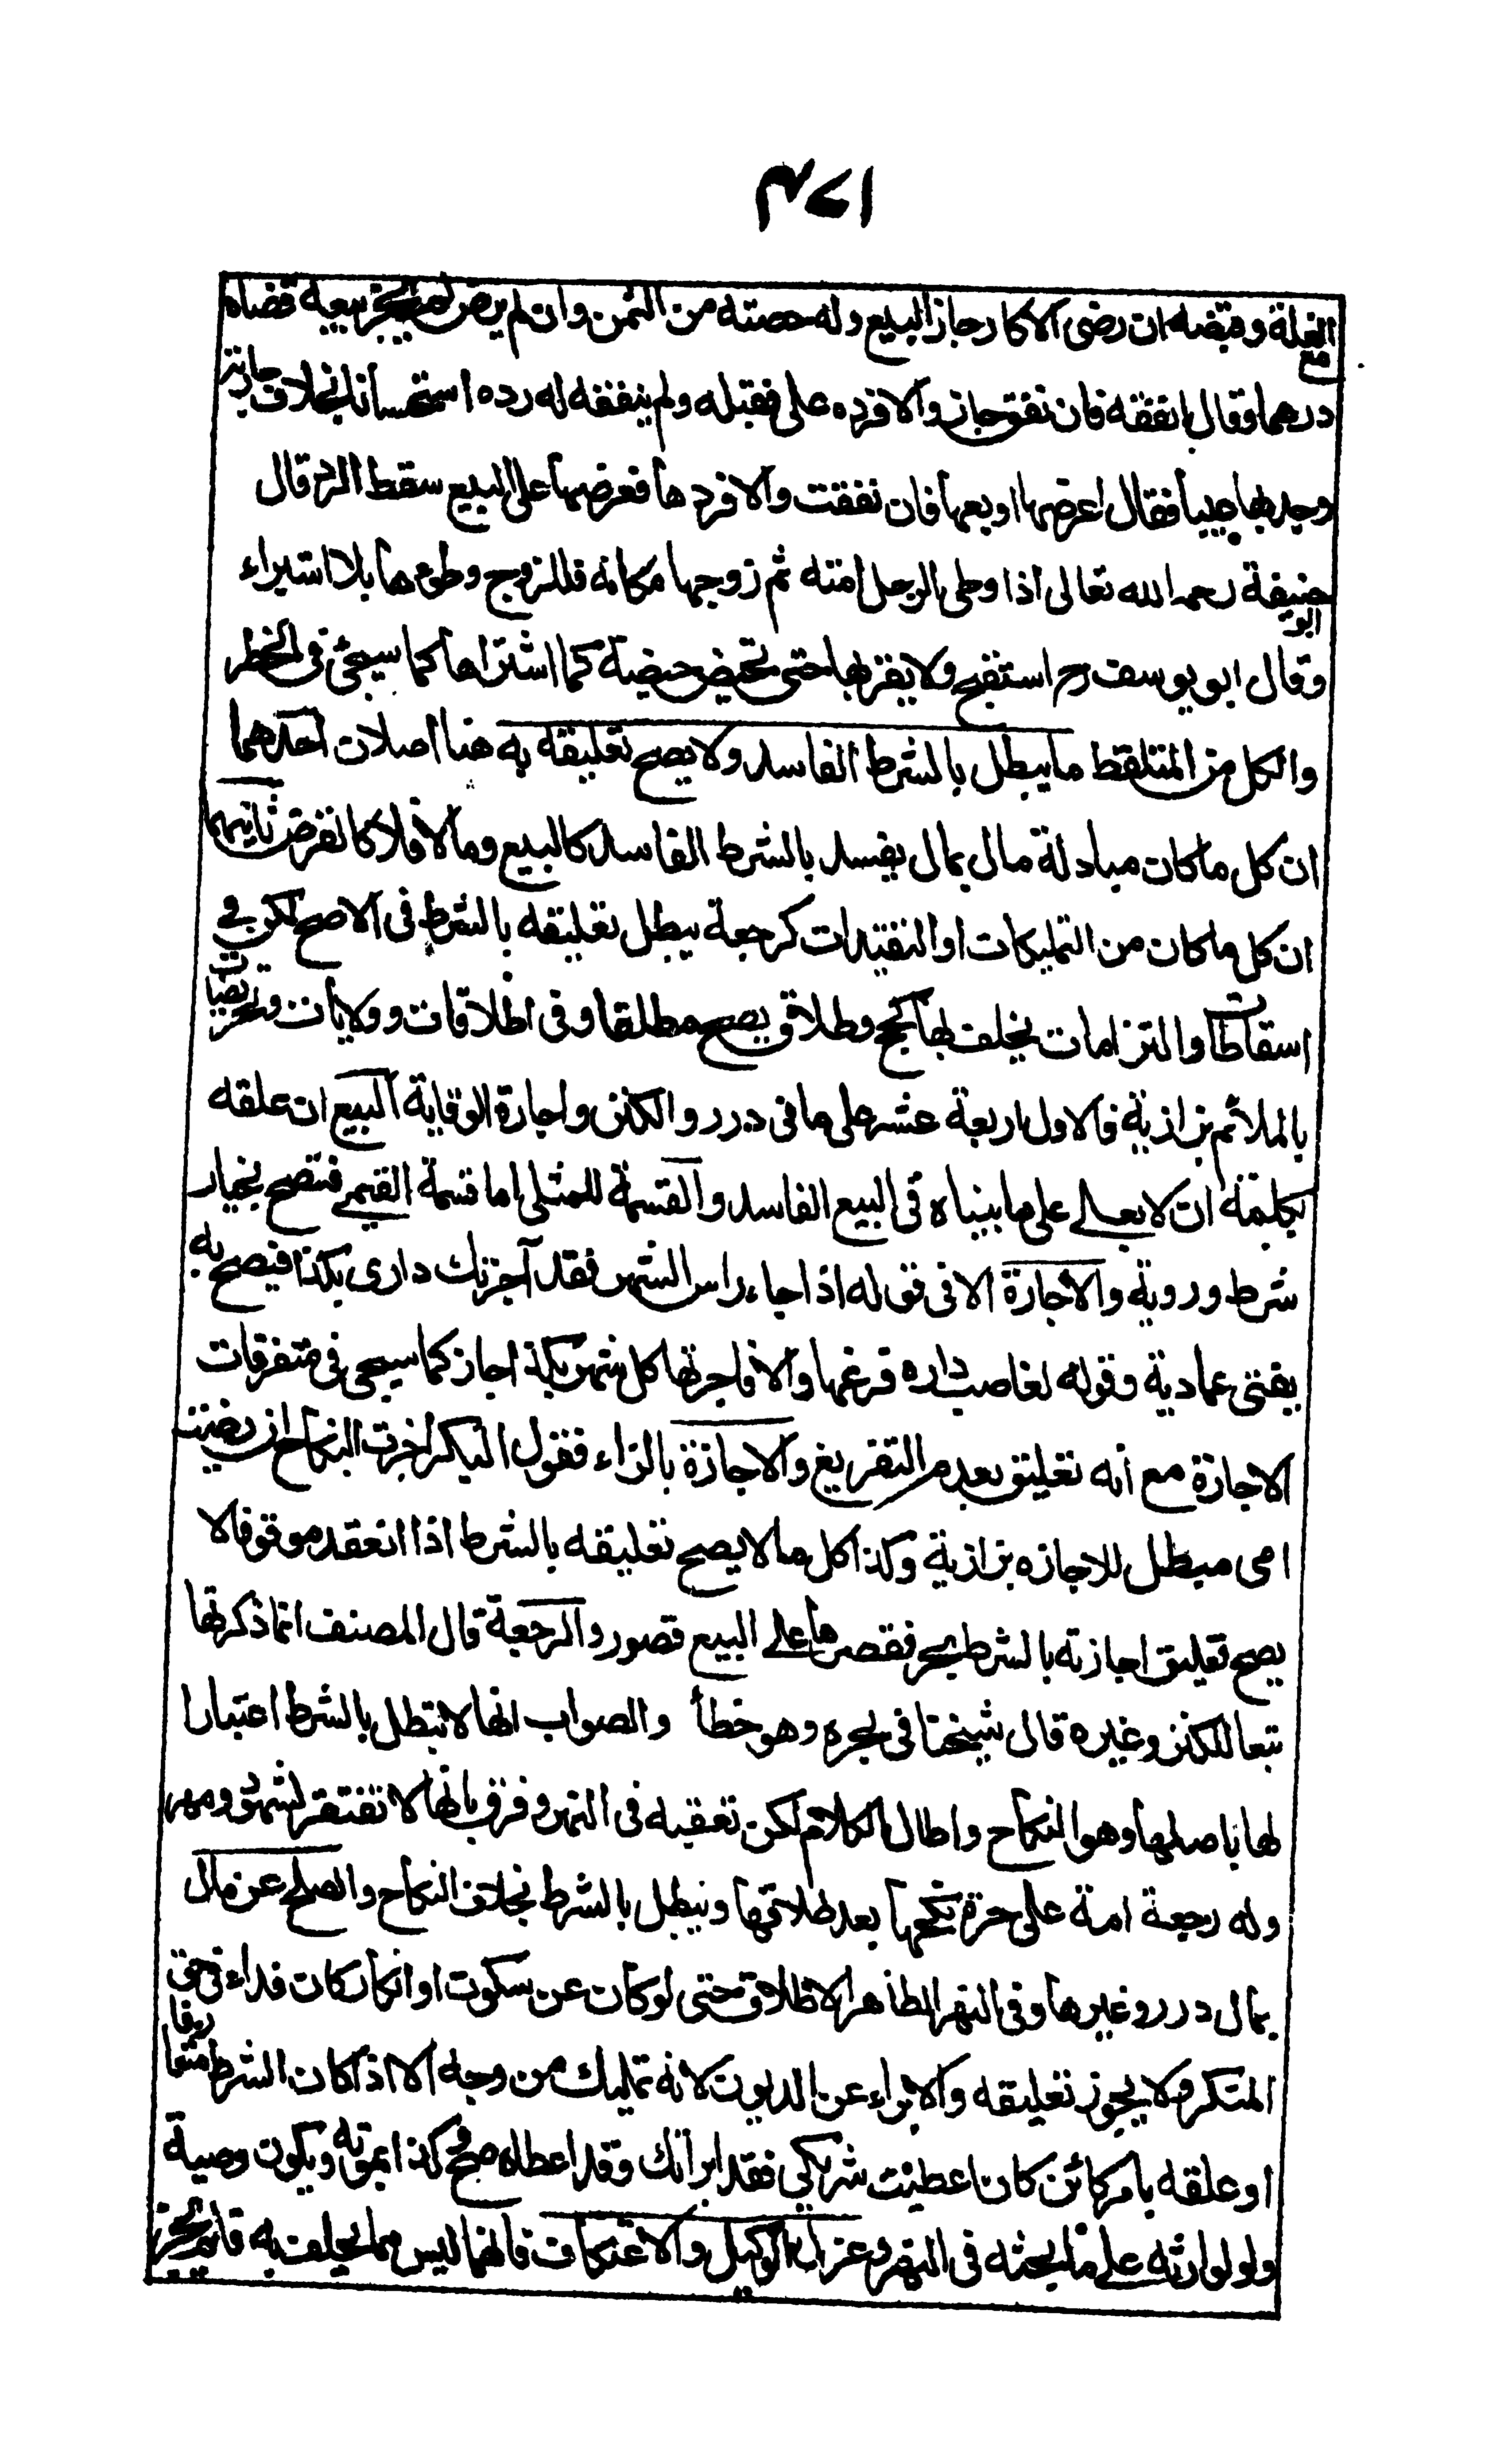 ٣٧١
الغلة وقبضه ان رضى الاكار جاز البيع وله حصته من الثمن وان لم يرض لم يجز بيعه قضاه
مع
درهما وقال انفقه فان نفق جاز والا فرده على فقبله ولم ينفقه له رده استحسانا بخلاف جارية
وجد بها عيبا فقال اعرضها او بعها فان نفقت والا فردها فعرضها على البيع سقط الرد قال
ابو
حنيفة رحمه الله تعالى اذا وطى الرجل امته ثم زوجها مكانه فللزوج وطوءها بلا استبراء
وقال ابو يوسف رح استقبح ولا يقربها حتى تحيض حيضة كما اشتراها كما سيجئ فى الحظر
والكل من الملتقط ما يبطل بالشرط الفاسد ولا يصح تعليقه به هنا اصلان احدهما
ان كل ما كان مبادلة مال بمال يفسد بالشرط الفاسد كالبيع وما لا فلا كالقرض ثانيهما
ان كل ما كان من التمليكات او التقييدات كرجعة يبطل تعليقه بالشرط فى الاصح لكن فى
اسقاطات والتزامات يحلف بها كحج وطلاق يصح مطلقا وفى اطلاقات وولايات وتحريضات
بالملائم بزازية فالاول اربعة عشر على ما فى درر والكنز واجارة الوقاية البيع ان علقه
بكلمة ان لا بعلى على ما بيناه فى البيع الفاسد والقسمة للمثلى اما قسمة القيمى فتصح بخيار
شرط وروية والاجارة الا فى قوله اذا جاء راس الشهر فقد آجرتك دارى بكذا فيصح به
يفتى عمادية وقوله لغاصب داره فرغها والا فاجرتها كل شهر بكذا جاز كما سيجى فى متفرقات
الاجازة مع أنه تعليق بعدم التفريغ والاجازة بالزاء فقول البكر اجزت النكاح ان رضيت
امى مبطل للاجازه بزازية وكذا كل ما لا يصح تعليقه بالشرط اذا انعقد موقوفا لا
يصح تعليق اجازته بالشرط بحر فقصرها على البيع قصور والرجعة قال المصنف انما ذكرتها
تبعا للكنز وغيره قال شيخنا فى بحره وهو خطأ والصواب انها لا تبطل بالشرط اعتبارا
لها باصلها وهو النكاح واطال الكلام لكن تعقبه فى النهر وفرق بانها لا تفتقر لشهود ومهر
وله رجعة امة على حرة نكحها بعد طلاقها وتبطل بالشرط بخلاف النكاح والصلح عن مال
بمال درر وغيرها وفى النهر الظاهر الاطلاق حتى لو كان عن سكوت او انكار كان فداء فى حق
المنكر ولا يجوز تعليقه والابراء عن الديون لانه تمليك من وجه الا اذا كان الشرط متعارفا
او علقه بامر كائن كان اعطيت شريكى فقد ابرأتك وقد اعطاه صح وكذا بموته ويكون وصية
ولو لوارثه على ما بحثه فى النهر وعزل الوكيل والاعتكاف فانهما ليس مما يحلف به فلم يجز